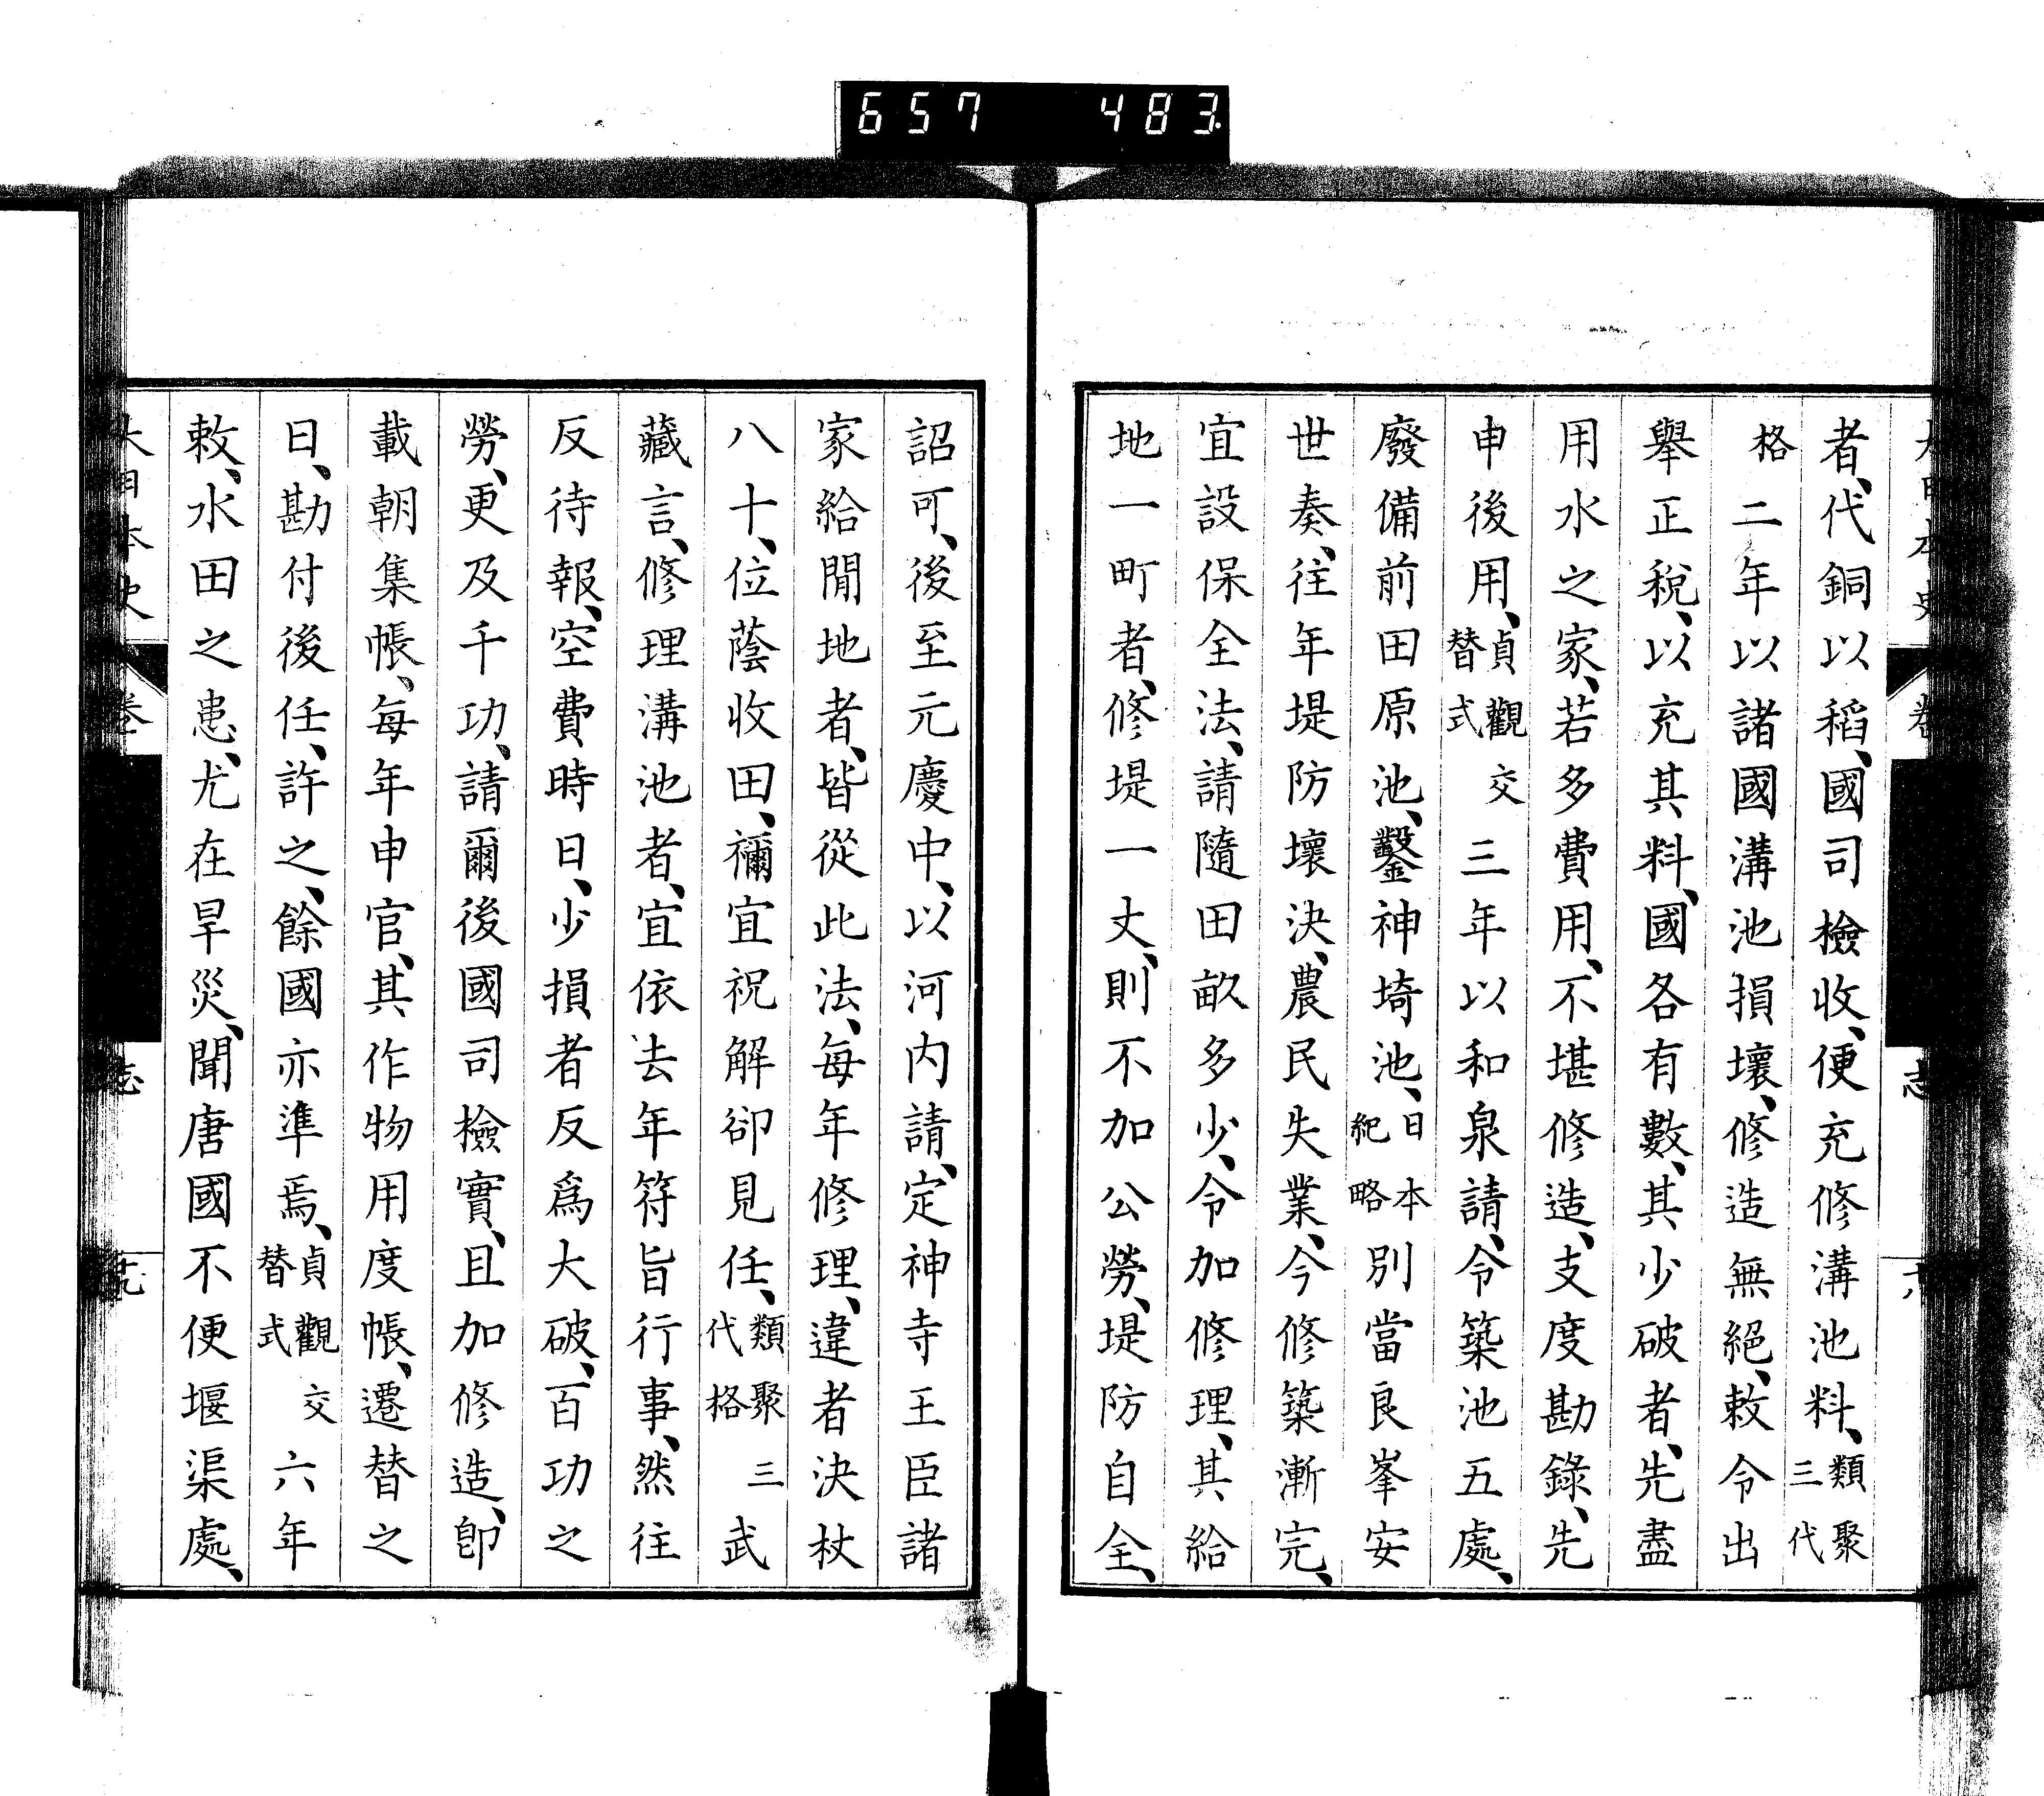 657 483
者、代銅以稻、國司檢收、便充修溝池料、類聚三代
格二年以諸國溝池損壞、修造無絕、敕令出
舉正稅、以充其料、國各有數、其少破者、先盡
用水之家、若多費用、不堪修造、支度勘錄、先
申後用、貞觀交替式三年以和泉請、令築池五處、
廢備前田原池、鑿神埼池、日本紀略別當良峯安
世奏、往年堤防壞決、農民失業、今修築漸完、
宜設保全法、請隨田畝多少、令加修理、其給
地一町者、修堤一丈、則不加公勞、堤防自全、
詔可、後至元慶中、以河內請、定神寺王臣諸
家給閒地者、皆從此法、每年修理、違者決杖
八十、位蔭收田、禰宜祝解卻見任、類聚三代格武
藏言、修理溝池者、宜依去年符旨行事、然往
反待報、空費時日、少損者反爲大破、百功之
勞、更及千功、請爾後國司檢實、且加修造、卽
載朝集帳、每年申官、其作物用度帳、遷替之
日、勘付後任、許之、餘國亦準焉、貞觀交替式六年
敕、水田之患、尤在旱災、聞唐國不便堰渠處、